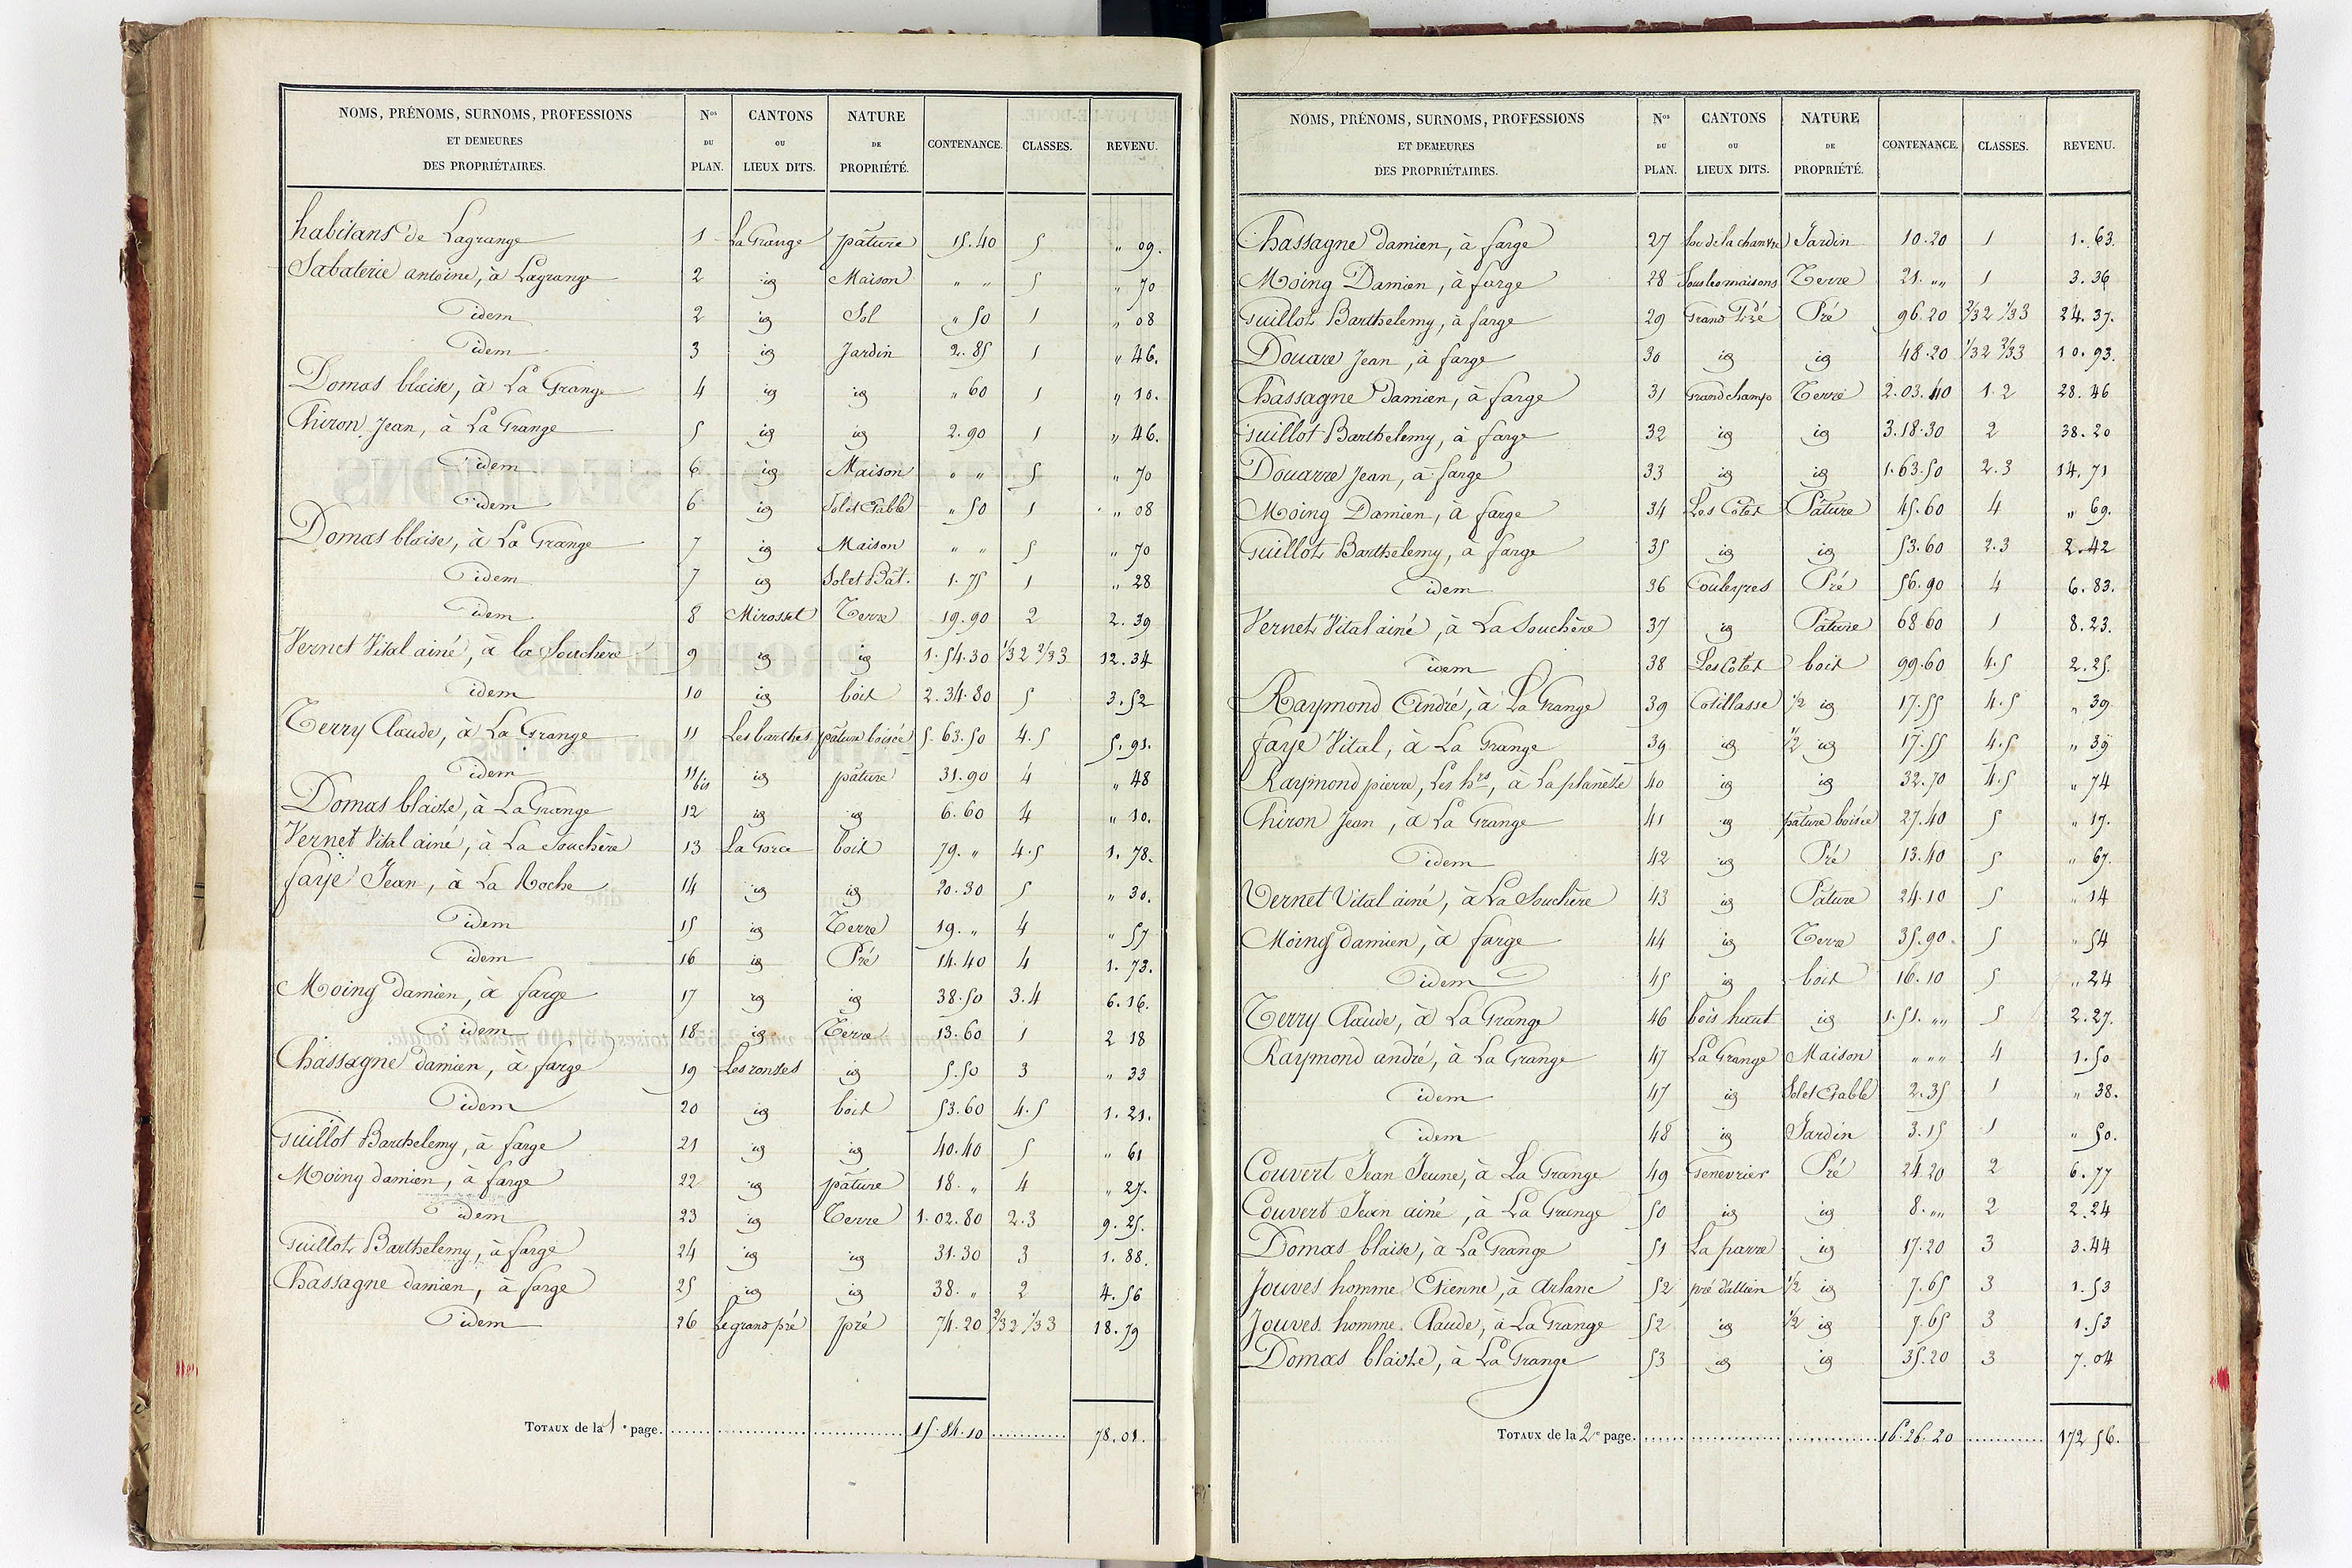 NOMS, PRÉNOMS, SURNOMS, PROFESSIONS ET DEMEURES DES PROPRIÉTAIRES. Nos DU PLAN. CANTONS OU LIEUX DITS. NATURE DE PROPRIÉTÉ. CONTENANCE. CLASSES. REVENU.
habitans de Lagrange 1 La Grange pâture 15.40 5 " 09.
Sabaterie antoine, à Lagrange 2 id Maison " " 5 " 70
idem 2 id Sol " 50 1 " 08
idem 3 id Jardin 2.85 1 " 46.
Domas blaise, à La Grange 4 id id " 60 1 " 10.
Chiron Jean, à La Grange 5 id id 2.90 1 " 46.
idem 6 id Maison " " 5 " 70
idem 6 id Sol et Etable " 50 1 " 08
Domas blaise, à La Grange 7 id Maison " " 5 " 70
idem 7 id Sol et Bât. 1.75 1 " 28
idem 8 Mirossel Terre 19.90 2 2.39
Vernet Vital ainé, à la Souchère 9 id id 1.54.30 1/32 2/33 12.34
idem 10 id bois 2.34.80 5 3.52
Terry Claude, à La Grange 11 Les barthes pâture boisée 5.63.50 4.5 5.91.
idem 11 bis id pâture 31.90 4 " 48
Domas blaise, à La Grange 12 id id 6.60 4 " 10.
Vernet Vital ainé, à La Souchère 13 La Gorce bois 79. " 4.5 1.78.
faye Jean, à La Roche 14 id id 20.30 5 " 30.
idem 15 id Terre 19. " 4 " 57
idem 16 id Pré 14.40 4 1.73.
Moing damien, à farge 17 id id 38.50 3.4 6.16.
idem 18 id Terre 13.60 1 2 18
Chassagne damien, à farge 19 Les ronses id 5.50 3 " 33
idem 20 id bois 53.60 4.5 1.21.
Guillot Barthelemy, à farge 21 id id 40.40 5 " 61
Moing damien, à farge 22 id pâture 18. " 4 " 27.
idem 23 id Terre 1.02.80 2.3 9.25.
Guillot Barthelemy, à farge 24 id id 31.30 3 1.88.
Chassagne damien, à farge 25 id id 38. " 2 4.56
idem 26 Le grand pré pré 74.20 2/32 1/33 18.79
TOTAUX de la 1e page. 15.84.10 78.01.
NOMS, PRÉNOMS, SURNOMS, PROFESSIONS ET DEMEURES DES PROPRIÉTAIRES. Nos DU PLAN. CANTONS OU LIEUX DITS. NATURE DE PROPRIÉTÉ. CONTENANCE. CLASSES. REVENU.
Chassagne damien, à farge 27 de la chanvre Jardin 10.20 1 1.63.
Moing Damien, à farge 28 Sous les maisons Terre 21. "" 1 3.36
Guillot Barthelemy, à farge 29 Grand Pré Pré 96.20 2/32 1/33 24.37.
Douare Jean, à farge 30 id id 48.20 1/32 2/33 10.93.
Chassagne damien, à farge 31 Grand champ Terre 2.03.40 1.2 28.46
Guillot Barthelemy, à farge 32 id id 3.18.30 2 38.20
Douarre Jean, à farge 33 id id 1.63.50 2.3 14.71
Moing Damien, à farge 34 Les Côtes Pâture 45.60 4 " 69.
Guillot Barthelemy, à farge 35 id id 53.60 2.3 2.42
idem 36 Couleyres Pré 56.90 4 6.83.
Vernet Vital ainé, à La Souchère 37 id Pâture 68.60 1 8.23.
idem 38 Les Côtes bois 99.60 4.5 2.25.
Raymond André, à La Grange 39 Cotillasse 1/2 id 17.55 4.5 " 39
faye Vital, à La Grange 39 id 1/2 id 17.55 4.5 " 39
Raymond pierre, Les hrs, à La planète 40 id id 32.70 4.5 " 74
Chiron Jean, à La Grange 41 id pâture boisée 27.40 5 " 17.
idem 42 id Pré 13.40 5 " 67.
Vernet Vital ainé, à La Souchère 43 id Pâture 24.10 5 " 14
Moing damien, à farge 44 id Terre 35.90. 5 " 54
idem 45 id bois 16.10 5 " 24
Terry Claude, à La Grange 46 bois haut id 1.51. "" 5 2.27.
Raymond andré, à La Grange 47 La Grange Maison " " " 4 1.50
idem 47 id Sol et Etable 2.35 1 " 38.
idem 48 id Jardin 3.15 1 " 50.
Couvert Jean Jeune, à La Grange 49 Genevrier Pré 24.20 2 6.77
Couvert Jean ainé, à La Grange 50 id id 8. "" 2 2.24
Domas blaise, à La Grange 51 La parre id 17.20 3 3.44
Jouves homme Etienne, à Arlanc 52 pré d'allien 1/2 id 7.65 3 1.53
Jouves homme Claude, à La Grange 52 id 1/2 id 7.65 3 1.53
Domas blaise, à La Grange 53 id id 35.20 3 7.04
TOTAUX de la 2e page. 16.26.20 172 56.